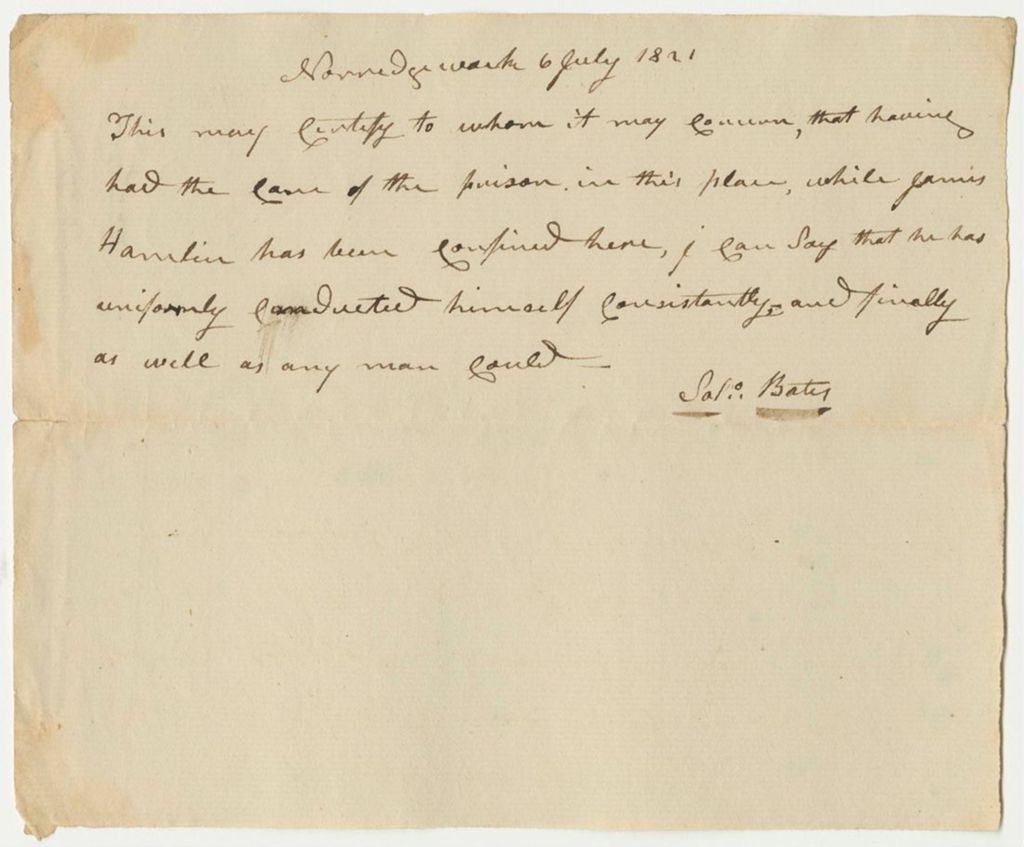 Norredgewock 6 July 1821
This may Certify to whom it may Concern, that having
had the Care of the prison in this place, while James
Hamlin has been Confined here, j Can Say that he has
uniformly Conducted himself Consistantly, and finally
as well as any man Could —
Solo. Bates